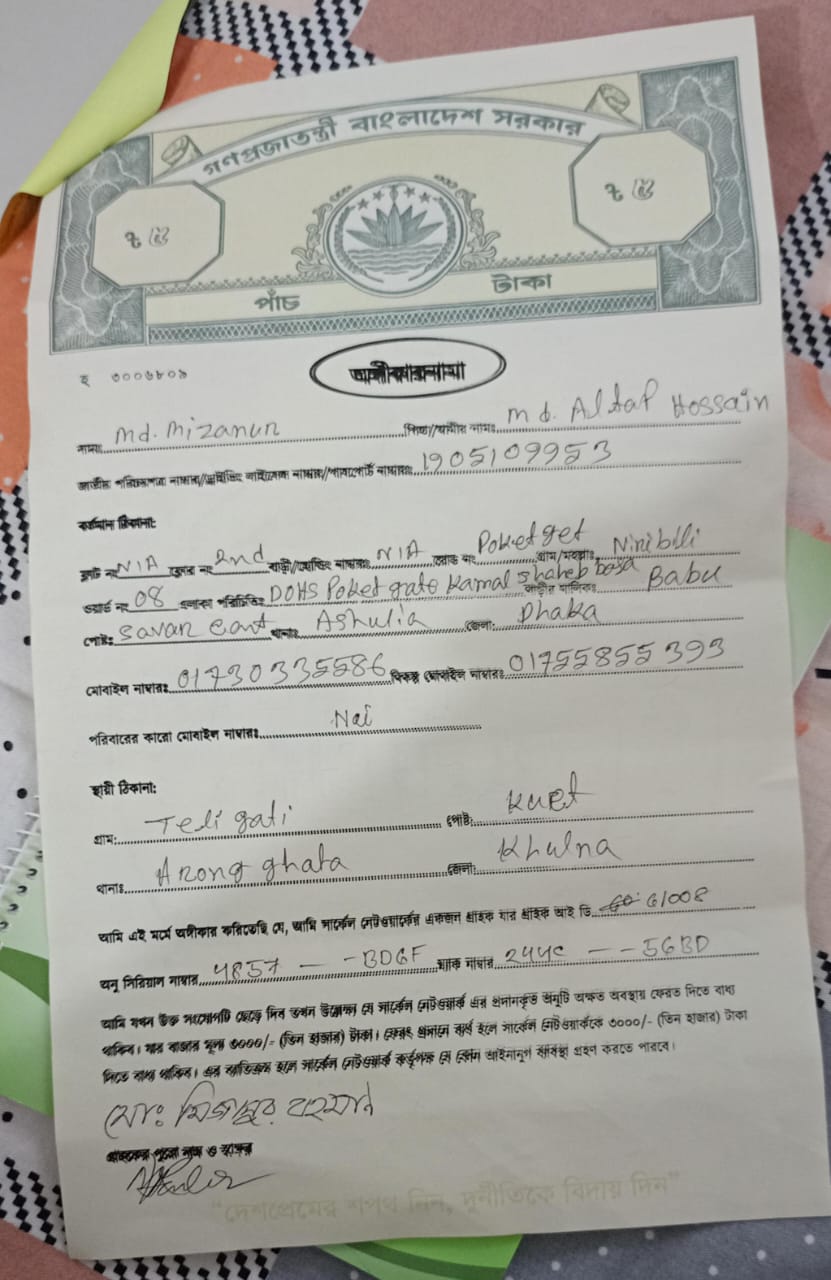 গণপ্রজাতন্ত্রী বাংলাদেশ সরকার
৳ ৫ ৳ ৫
পাঁচ টাকা
অঙ্গীকারনামা
নামঃ Md. Mizanun পিতা/স্বামীর নামঃ Md. Altaf Hossain
জাতীয় পরিচয়পত্র নাম্বার/ড্রাইভিং লাইসেন্স নাম্বার/পাসপোর্ট নাম্বারঃ 1905109953
বর্তমান ঠিকানা:
ফ্লাট নং N/A ফ্লোর নং 2nd বাড়ী/হোল্ডিং নাম্বারঃ N/A রোড নং Poket get গ্রাম/মহল্লাঃ Niribili
ওয়ার্ড নং 08 এলাকা পরিচিতিঃ DOHS Poket gate Kamal shaheb basa বাড়ীর মালিকঃ Babu
পোষ্টঃ Savar cant থানাঃ Ashulia জেলাঃ Dhaka
মোবাইল নাম্বারঃ 01730335586 বিকল্প মোবাইল নাম্বারঃ 01755855393
পরিবারের কারো মোবাইল নাম্বারঃ Nai
স্থায়ী ঠিকানা:
গ্রাম: Teligati পোষ্ট: Kuet
থানাঃ Arongghata জেলা: Khulna
আমি এই মর্মে অঙ্গীকার করিতেছি যে, আমি সার্কেল নেটওয়ার্কের একজন গ্রাহক যার গ্রাহক আই ডি G1008
অনু সিরিয়াল নাম্বার 4857 – – BDGF ম্যাক নাম্বার 244C – – 5GBD
আমি যখন উক্ত সংযোগটি ছেড়ে দিব তখন উল্লেখ্য যে সার্কেল নেটওয়ার্ক এর প্রদানকৃত অনুটি অক্ষত অবস্থায় ফেরত দিতে বাধ্য
থাকিব। যার বাজার মূল্য ৩০০০/= (তিন হাজার) টাকা। ফেরৎ প্রদানে ব্যর্থ হলে সার্কেল নেটওয়ার্ককে ৩০০০/- (তিন হাজার) টাকা
দিতে বাধ্য থাকিব। এর ব্যতিক্রম হলে সার্কেল নেটওয়ার্ক কর্তৃপক্ষ যে কোন আইনানুগ ব্যবস্থা গ্রহণ করতে পারবে।
মোঃ মিজানুর রহমান
গ্রাহকের পুরো নাম ও স্বাক্ষর
“দেশপ্রেমের শপথ নিন, দুর্নীতিকে বিদায় দিন”